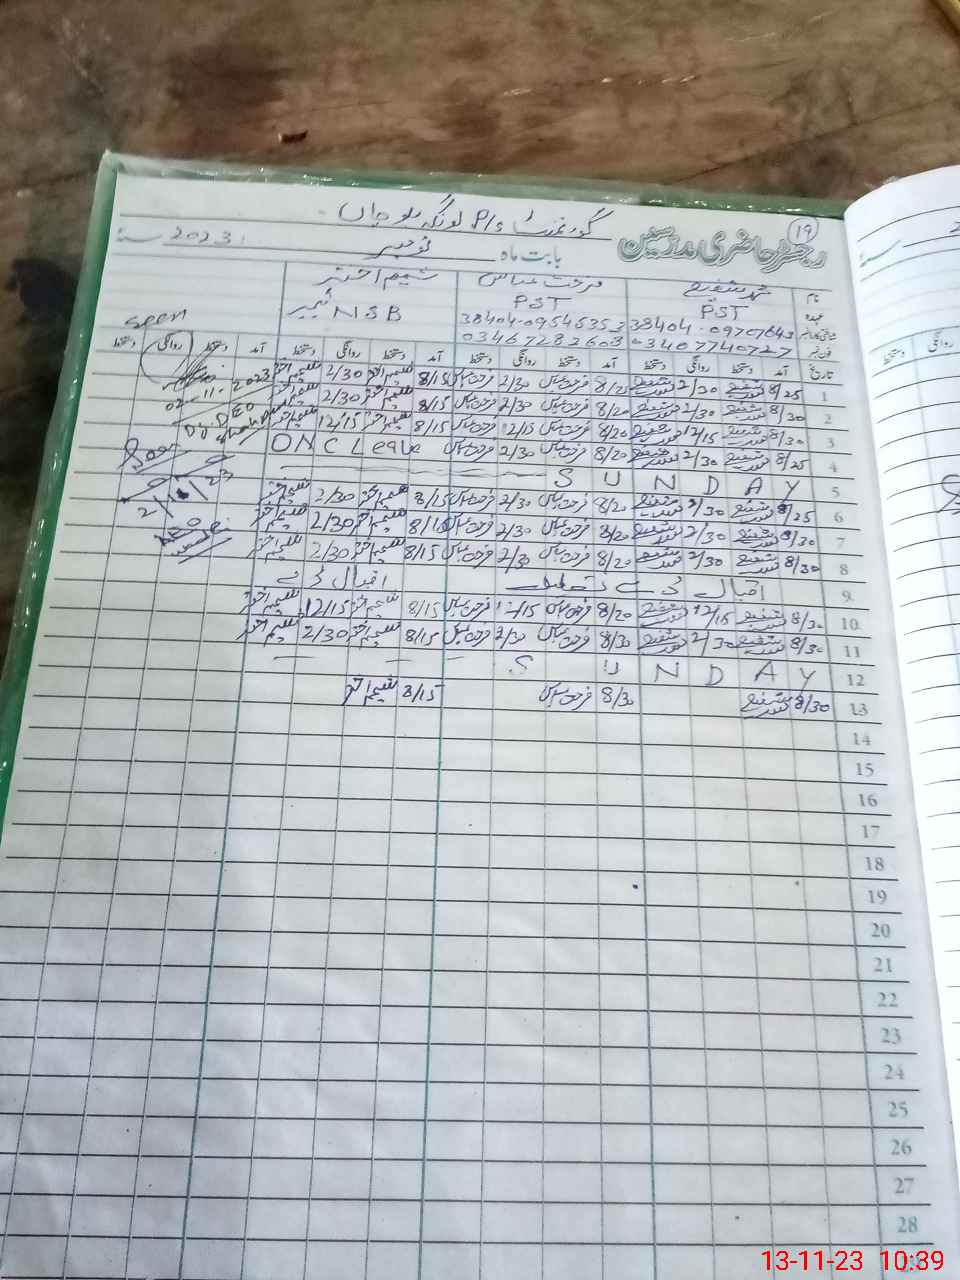 19
رجسٹر حاضری مدرسین
گورنمنٹ P/S
بابت ماہ نومبر 2023
نام محمد شفیع فرحت عباس شمیم اختر
عہدہ PST PST NSB
38404-09707643 38404-09545353
03407740727 03467282603
تاریخ آمد دستخط روانگی دستخط آمد دستخط روانگی دستخط آمد دستخط روانگی دستخط آمد دستخط روانگی دستخط
1 8/25 شفیع 2/30 شفیع 8/20 فرحت عباس 2/30 فرحت عباس 8/15 شمیم اختر 2/30 شمیم اختر
2 8/30 شفیع 2/30 شفیع 8/20 فرحت عباس 2/30 فرحت عباس 8/15 شمیم اختر 2/30 شمیم اختر
3 8/30 شفیع 12/15 شفیع 8/20 فرحت عباس 12/15 فرحت عباس 8/15 شمیم اختر 12/15 شمیم اختر
4 8/25 شفیع 2/30 شفیع 8/20 فرحت عباس 2/30 فرحت عباس ON C Leave
5 SUNDAY
6 8/25 شفیع 2/30 شفیع 8/20 فرحت عباس 2/30 فرحت عباس 8/15 شمیم اختر 2/30 شمیم اختر
7 8/30 شفیع 2/30 شفیع 8/20 فرحت عباس 2/30 فرحت عباس 8/15 شمیم اختر 2/30 شمیم اختر
8 8/30 شفیع 2/30 شفیع 8/20 فرحت عباس 2/30 فرحت عباس 8/15 شمیم اختر 2/30 شمیم اختر
9 اقبال ڈے تعطیل اقبال ڈے
10 8/30 شفیع 12/15 شفیع 8/20 فرحت عباس 12/15 فرحت عباس 8/15 شمیم اختر 12/15 شمیم اختر
11 8/30 شفیع 2/30 شفیع 8/30 فرحت عباس 2/30 فرحت عباس 8/15 شمیم اختر 2/30 شمیم اختر
12 SUNDAY
13 8/30 شفیع 8/30 فرحت عباس 8/15 شمیم اختر
14
15
16
17
18
19
20
21
22
23
24
25
26
27
28
seen
02-11-2023
Dy. DEO
AEO
13-11-23 10:39